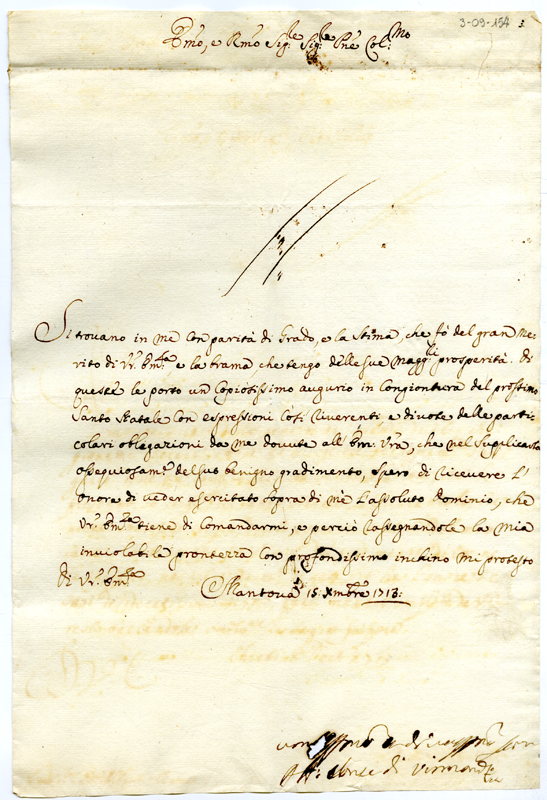 3-09-154
Emo, e Rmo Sig:re Sig:re Pne Col:mo
Si trouano in me con parità di grado, e la stima, che fò del gran me-
rito di Vr. Em.za e la brama che tengo delle sue magg.li prosperità. Di
queste le porto un copiosissimo augurio in congiontura del prossimo
Santo Natale con espressioni così riuerenti e diuote delle parti-
colari obligazioni da me douute all' Em. Vra, che nel supplicarla
ossequiosam.te del suo benigno gradimento, spero di riceuere l'
onore di ueder esercitato sopra di me l'assoluto Dominio, che
Vr. Em.za tiene di comandarmi, e perciò rassegnandole la mia
inuiolabile prontezza con profondissimo inchino mi protesto
di Vr. Em.za
Mantoua 15 Xmbre 1713:
di
di Virmond